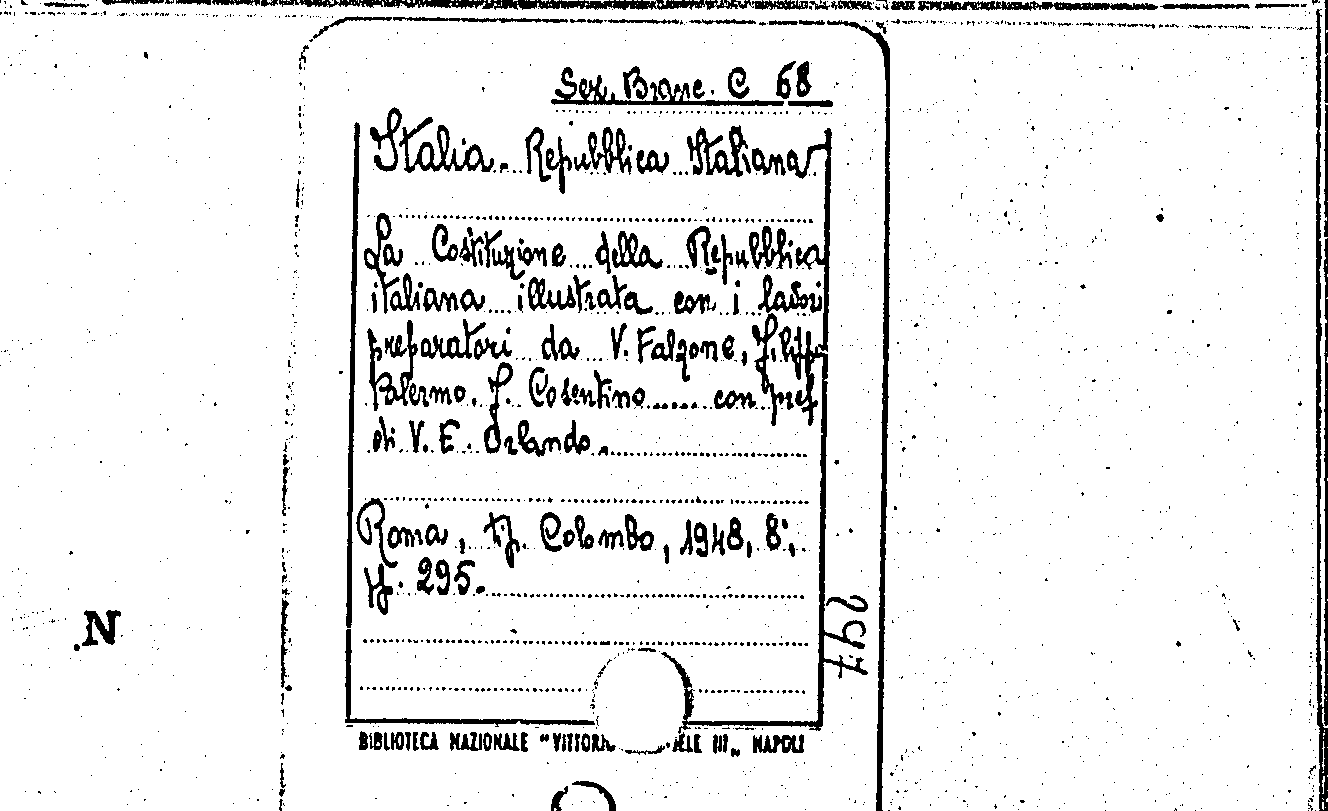 Sez. Branc. C 68
Italia. Repubblica Italiana
La Costituzione della Repubblica
italiana illustrata con i lavori
preparatori da V. Falzone, Filippo
Palermo. F. Cosentino ..... con pref
di V. E. Orlando.
Roma, tip. Colombo, 1948, 8°,
pp. 295.
N
BIBLIOTECA NAZIONALE "VITTORI ELE III„ NAPOLI